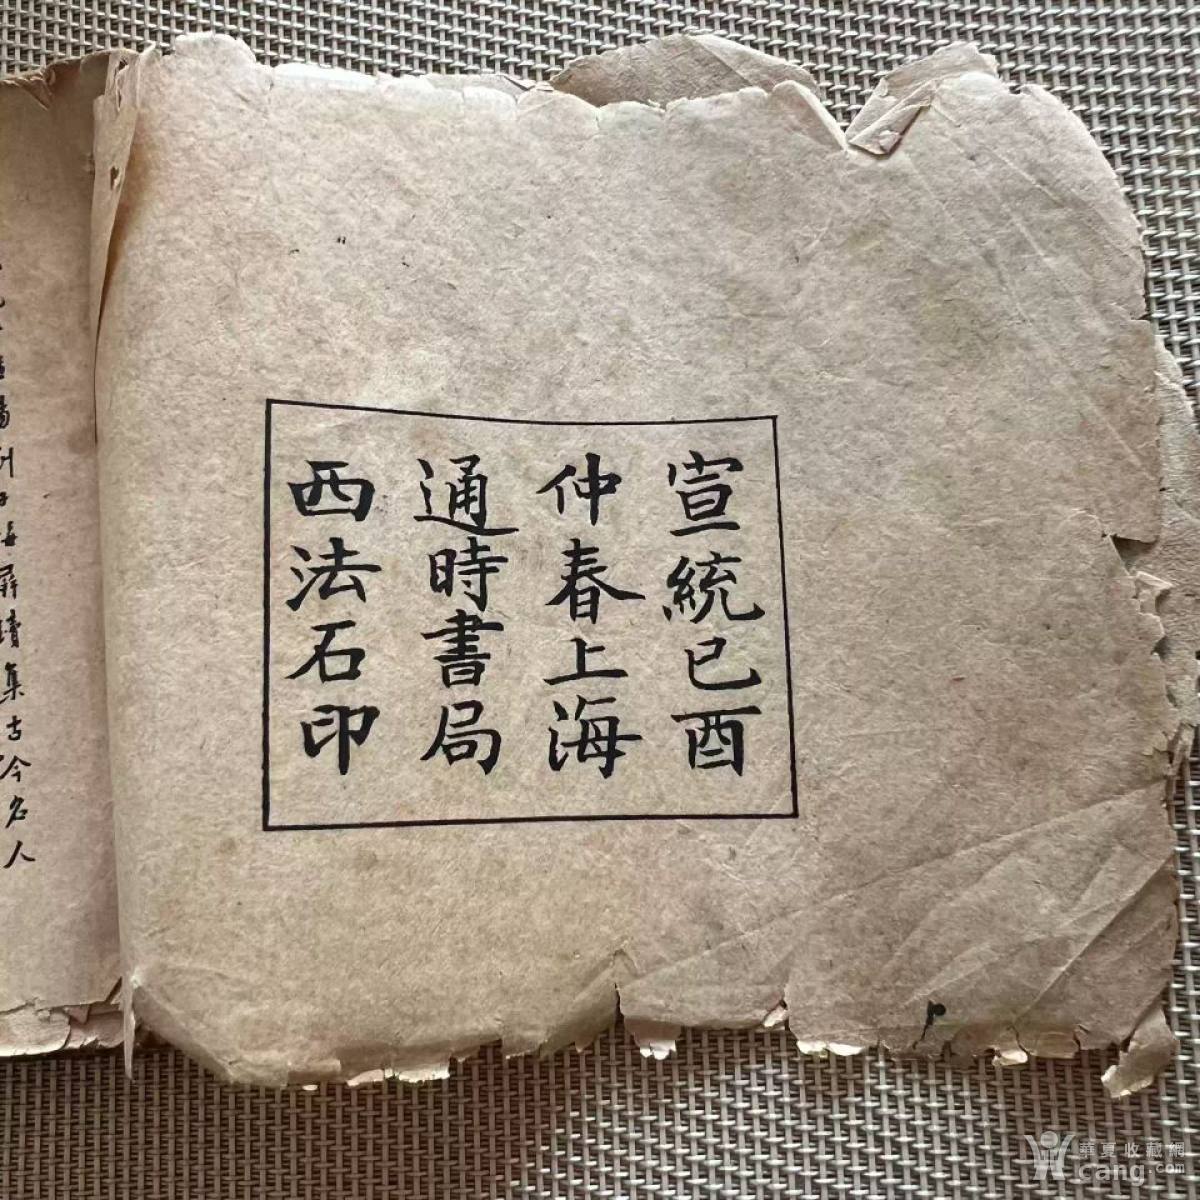 宣統已酉
仲春上海
通時書局
西法石印
集古今名人
華夏收藏網
cang.com